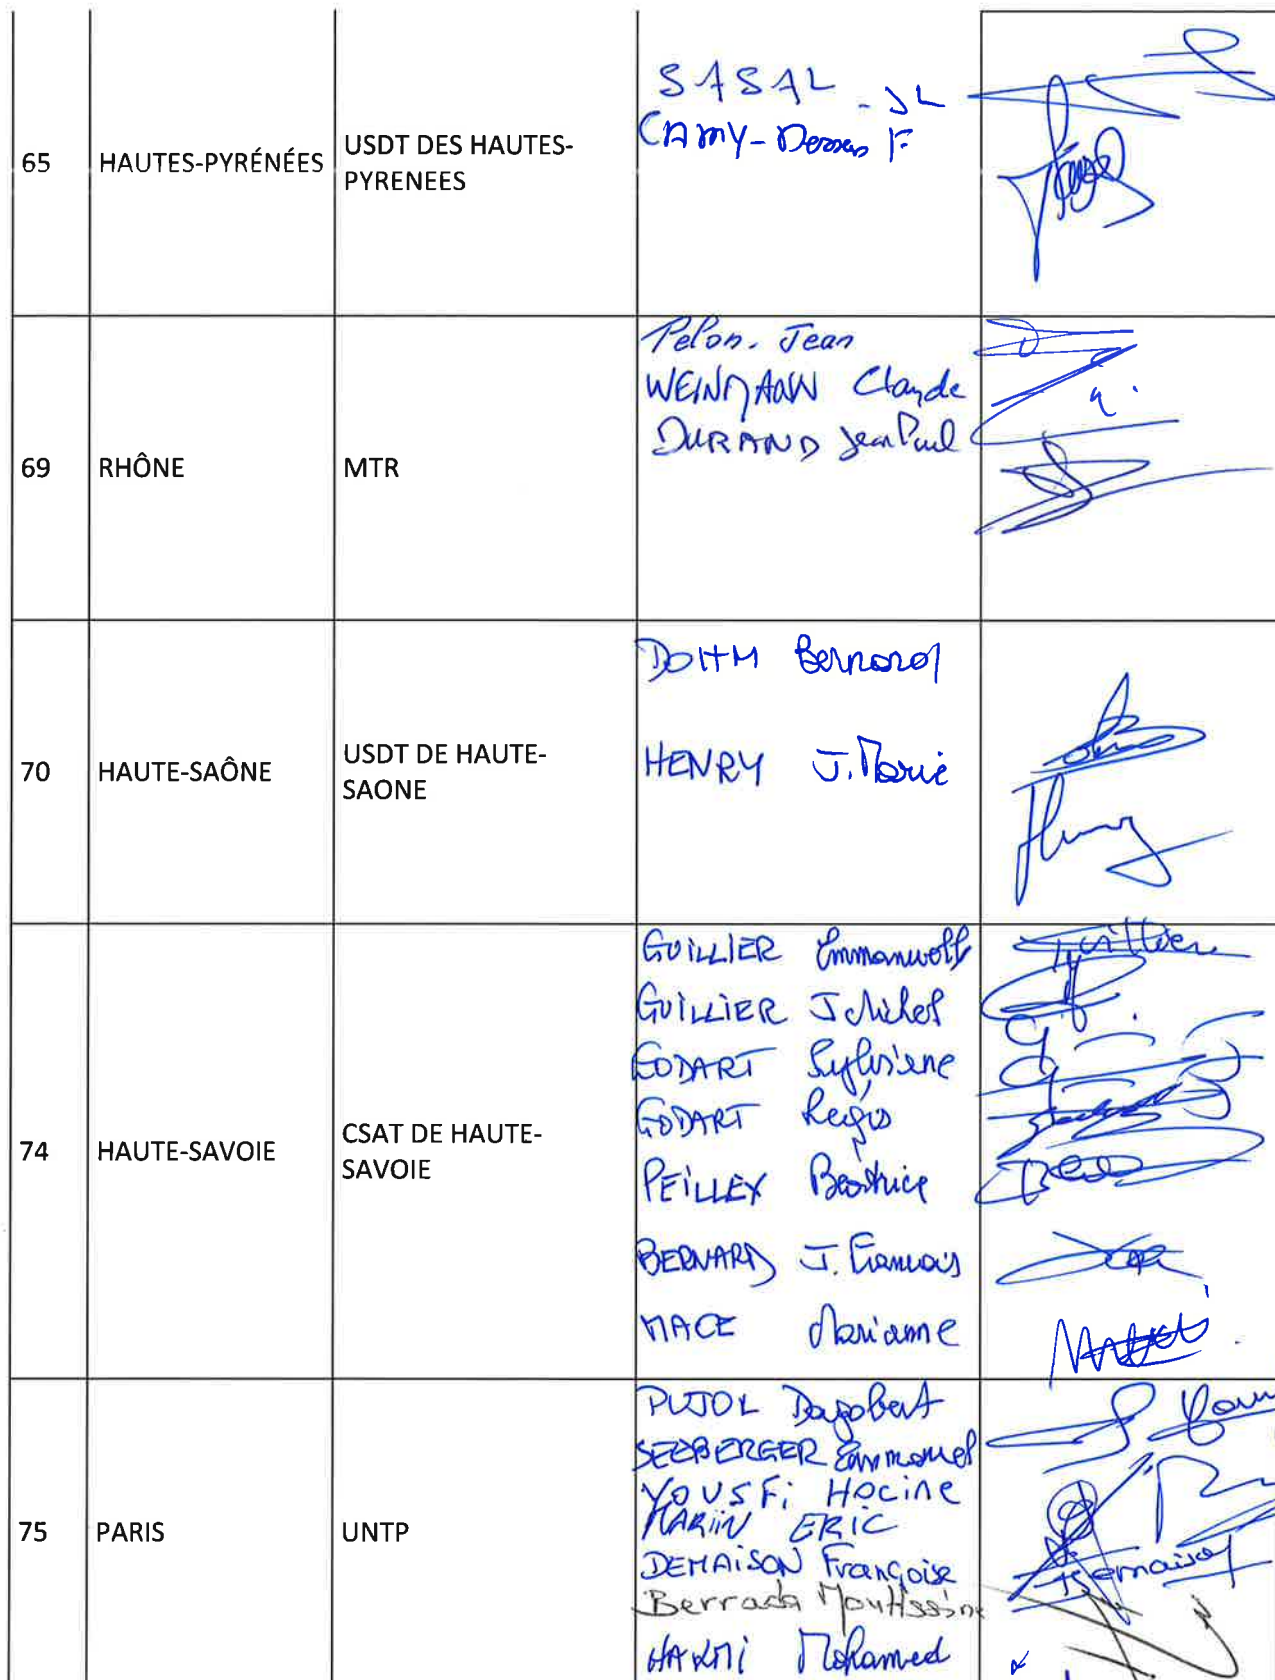 65 HAUTES-PYRÉNÉES USDT DES HAUTES-
PYRENEES
SASAL - JL
CAMY- F
69 RHÔNE MTR
Pelon. Jean
WEINMANN Claude
DURAND Jean Paul
70 HAUTE-SAÔNE USDT DE HAUTE-
SAONE
DOHM Bernard
HENRY J. Marie
74 HAUTE-SAVOIE CSAT DE HAUTE-
SAVOIE
GUILLIER
GUILLIER J Michel
GODART Sylviene
GODART Regis
PEILLEX Beatrice
BERNARD J. Francois
MACE Marianne
75 PARIS UNTP
PUJOL Dagobert
SEEBERGER Emmanuel
YOUSFi HOCiNe
MARiiN ERiC
DEMAiSON Françoise
Berrada
HAKMi Mohamed
Demaison